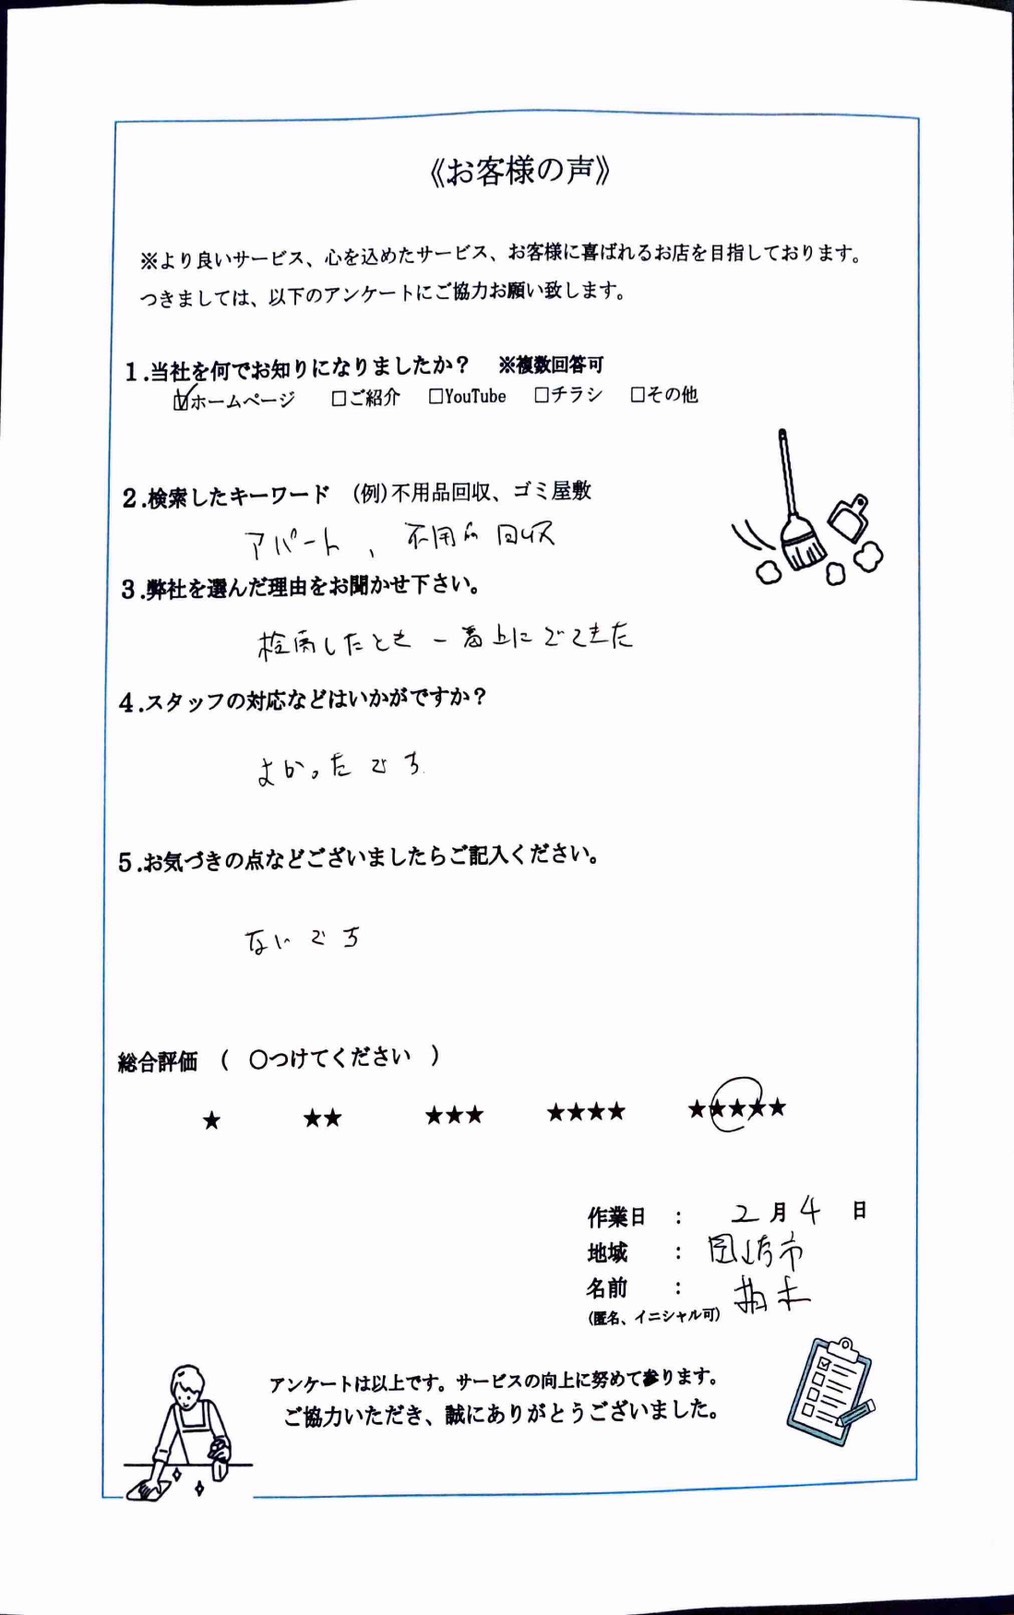 《お客様の声》
※より良いサービス、心を込めたサービス、お客様に喜ばれるお店を目指しております。
つきましては、以下のアンケートにご協力お願い致します。
1.当社を何でお知りになりましたか? ※複数回答可
☑ホームページ □ご紹介 □YouTube □チラシ □その他
2.検索したキーワード (例)不用品回収、ゴミ屋敷
アパート、不用品回収
3.弊社を選んだ理由をお聞かせ下さい。
検索したとき一番上にでてきた
4.スタッフの対応などはいかがですか?
よかったです
5.お気づきの点などございましたらご記入ください。
ないです
総合評価 ( ○つけてください )
★ ★★ ★★★ ★★★★ ★★★★★
作業日 : 2月4日
地域 : 岡崎市
名前 :
(匿名、イニシャル可)
アンケートは以上です。サービスの向上に努めて参ります。
ご協力いただき、誠にありがとうございました。